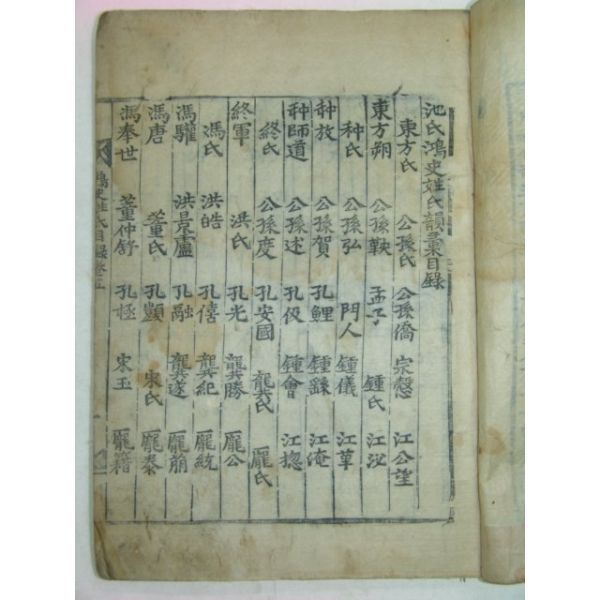 池氏鴻史姓氏韻彙目錄
東方氏 公孫氏 公孫僑 宗慤 江公望
東方朔 公孫鞅 孟子 鍾氏 江泌
种氏 公孫弘 門人 鍾儀 江革
种放 公孫賀 孔鯉 鍾繇 江淹
种師道 公孫述 孔伋 鍾會 江摠
終氏 公孫度 孔安國 龔氏 龐氏
終軍 洪氏 孔光 龔勝 龐公
馮氏 洪皓 孔僖 龔紀 龐統
馮驩 洪景盧 孔融 龔遂 龐萠
馮唐 董氏 孔顗 宋氏 龐泰
馮奉世 董仲舒 孔極 宋玉 龐籍
鴻史姓氏目錄卷之